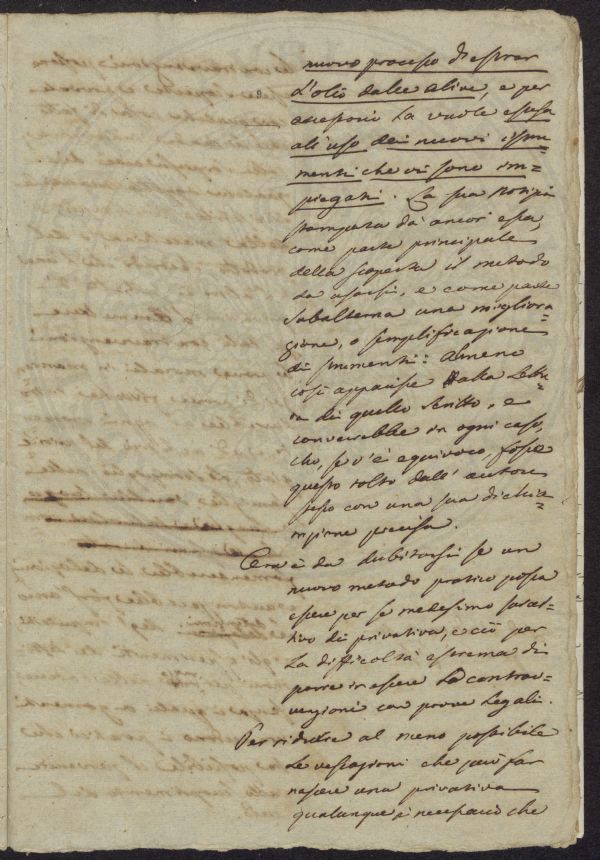 nuovo processo di estrar
l'olio dalle olive, e per
accessorj la vuole estesa
all'uso dei nuovi istru-
menti che vi sono im-
piegati. La sua Notizia
stampata dà ancor essa,
come parte principale
della scoperta il metodo
da usarsi, e come parte
subalterna una migliora-
zione, o semplificazione
di strumenti: almeno
così apparisce dalla Lettu-
ra di quello scritto, e
converrebbe in ogni caso,
che, se v'è equivoco, fosse
questo tolto dall'autore
stesso con una sua dichia-
razione precisa.
Ora è da dubitarsi se un
nuovo metodo pratico possa
essere per se medesimo suscet-
tivo di privativa, e ciò per
la difficoltà estrema di
porre in essere le contrav-
venzioni con prove legali.
Per ridurre al meno possibile
le vessazioni che può far
nascere una privativa
qualunque è necessario che